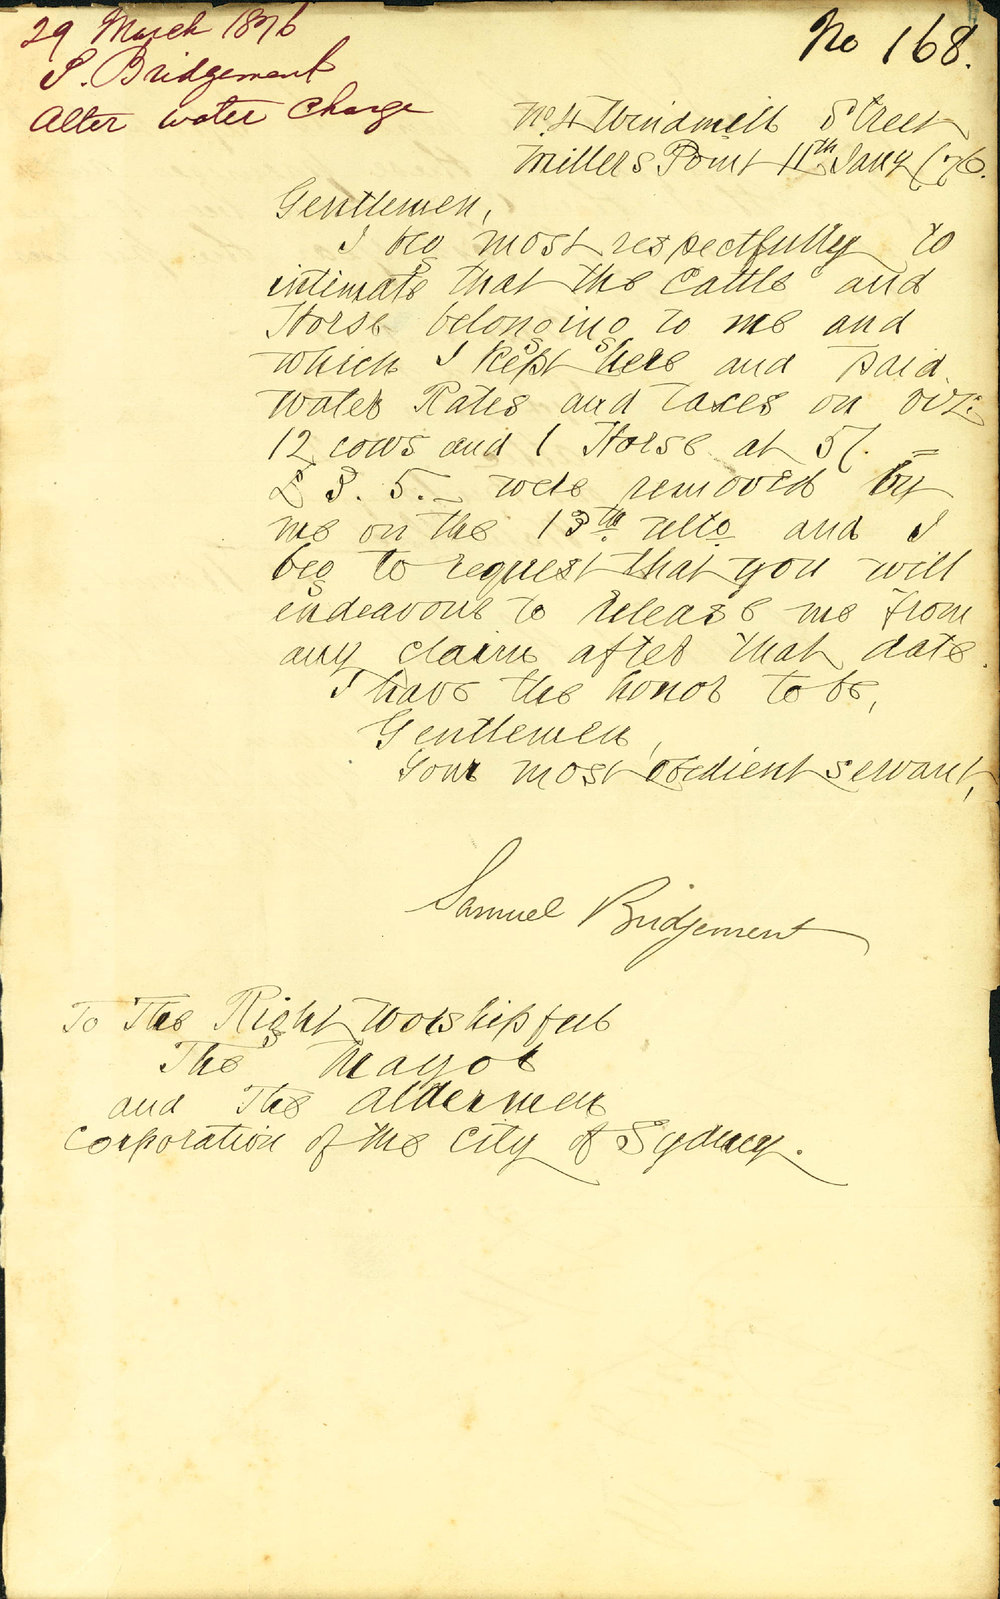 29 March 1876
S. Bridgement
Alter water Charge
No 168.
No 4 Windmill Street
Millers Point 11th Jany /76.
Gentlemen,
I beg most respectfully to
intimate that the Cattle and
Horse belonging to me and
which I kept here and paid
Water Rates and Taxes on viz:
12 cows and 1 Horse at 5/. =
£3. 5. – were removed by
me on the 13th ulto and I
beg to request that you will
endeavour to release me from
any claim after that date.
I have the honor to be,
Gentlemen,
Your most obedient servant,
Samuel Bridgement
To The Right Worshipful
The Mayor
and The Aldermen
Corporation of the City of Sydney.